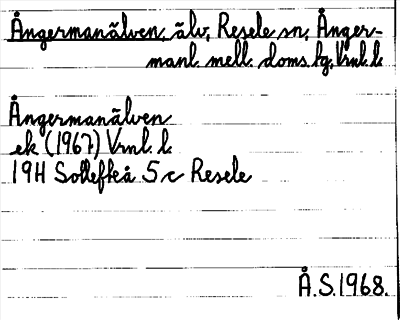 Ångermanälven, älv, Resele sn, Ånger-
manl. mell. doms.sg, Vrnl. l.
Ångermanälven
ek (1967) Vrnl. l.
19H Sollefteå 5 c Resele
Å.S.1968.